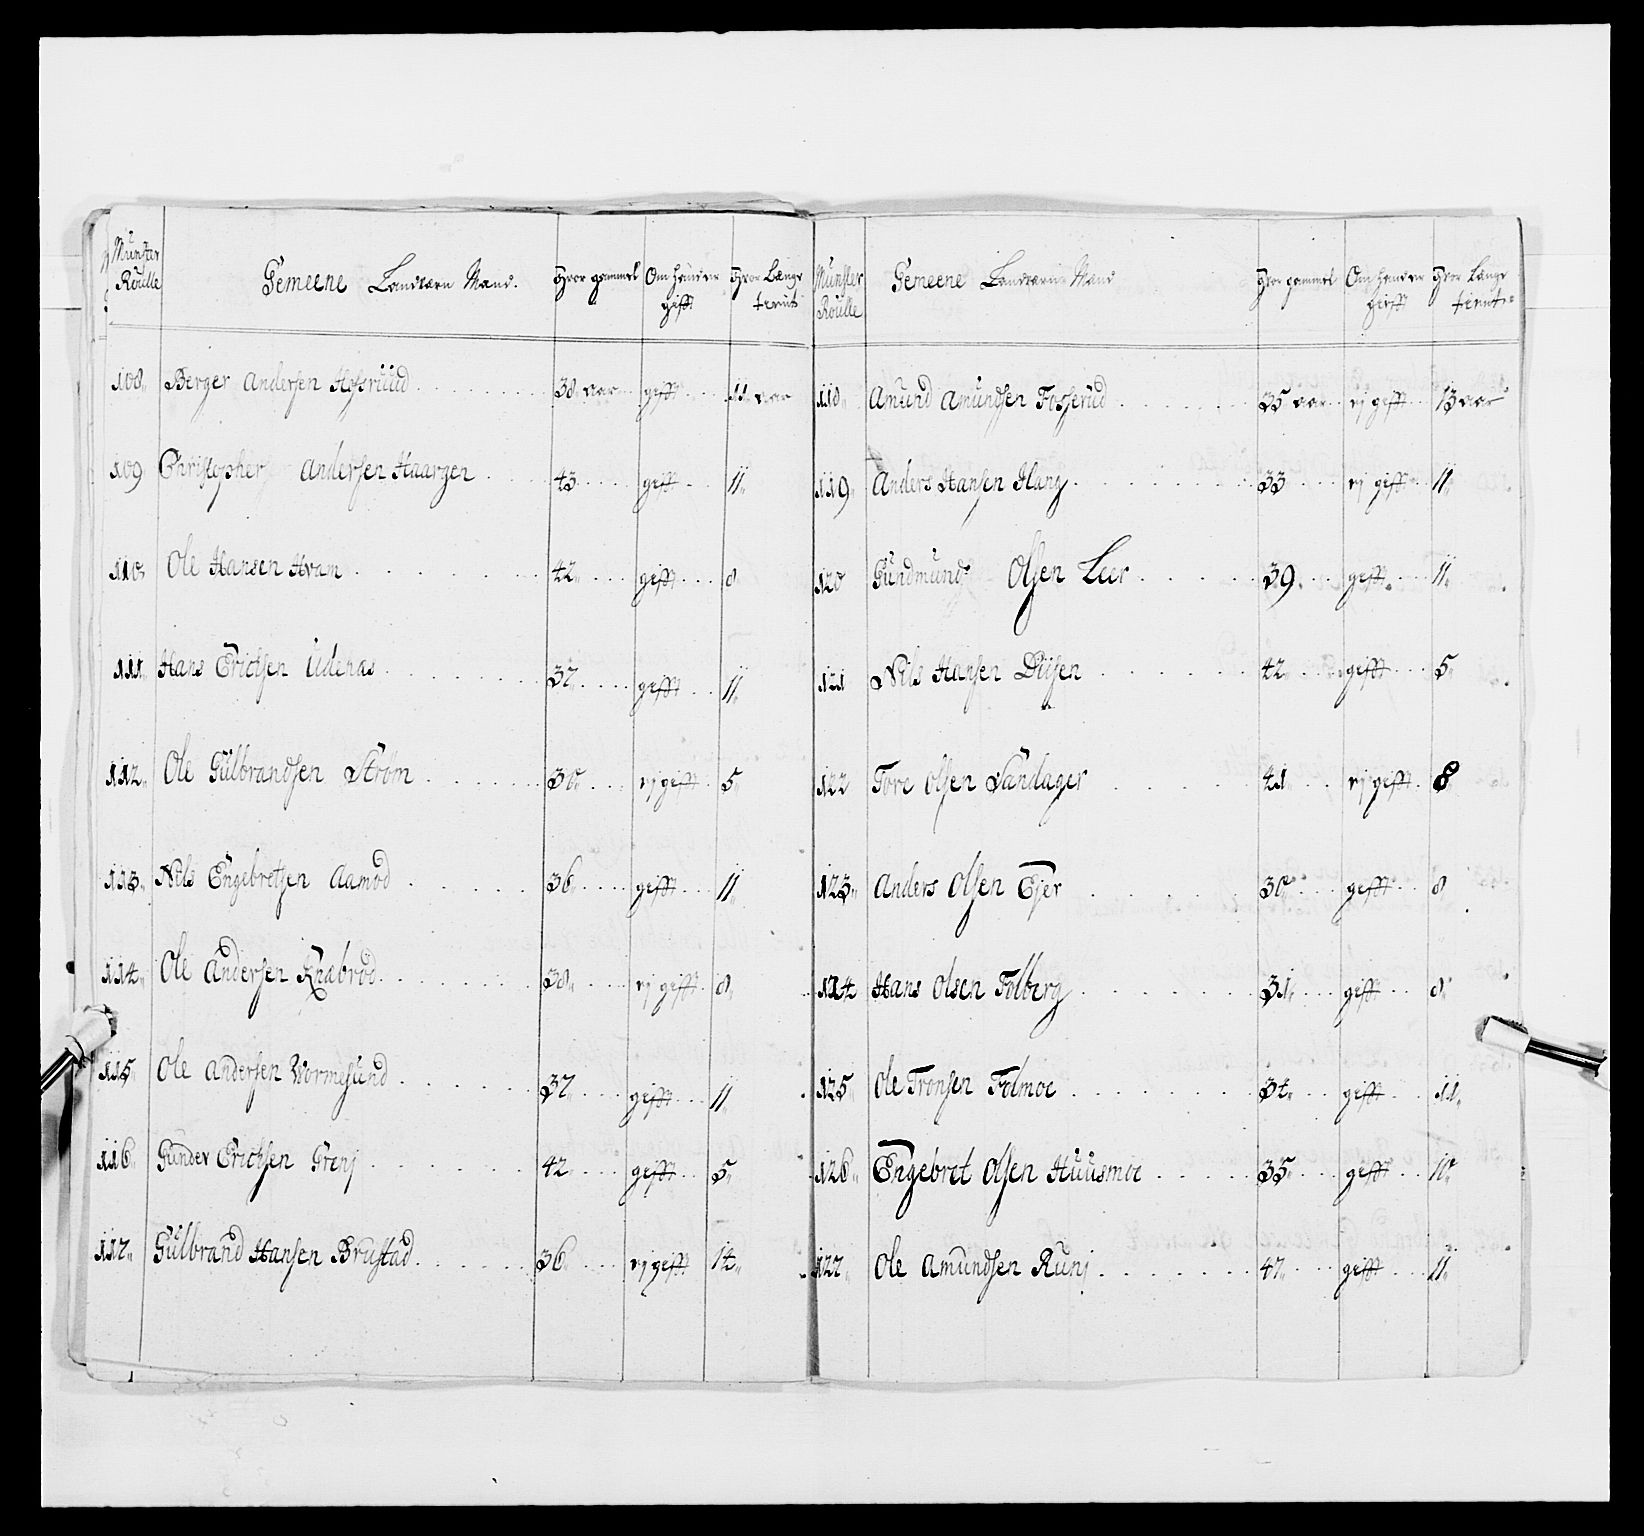 Münster Roulle Gemeene Landværn Mand. Hvor gammel Om hand er gifft Hvor Længe tient
108. Berger Andersen Hofsrüüd 38 aar gifft 11 aar
109 Christopher Andersen Haargen 43 gifft 11.
110 Ole Hansen Hvam 42 gifft 8
111. Hans Erichsen Udenæs 37 gifft 11.
112. Ole Gülbrandsen Strøm 30 ej gifft 5
113. Nils Engebretsen Aamod 36 gifft 11.
114. Ole Andersen Knabrod 38 ej gifft 8.
115. Ole Andersen Wormesund 37 gifft 11.
116. Gunder Erichsen Grenj 42 gifft 5.
117. Gülbrand Hansen Brustad 36 ej gifft 14.
Münster Roulle Gemeene Landværn Mand Hvor gammel Om hand er gifft Hvor Længe tient
118. Amund Amundsen Fosserud 35 aar ej gifft 13 aar
119. Anders Hansen Hang 33 ej gifft 11.
120 Gundmund Olsen Leer 39. gifft 11.
121 Nils Hansen Diisen 42 gifft 5.
122 Tore Olsen Sandager 41 ej gifft 8
123. Anders Olsen Ejer 30 gifft 8
124 Hans Olsen Folberg 31. gifft 8.
125 Ole Tronsen Folmoe 34. gifft 11.
126. Engebret Olsen Huusmoe 35. gifft 10.
127. Ole Amundsen Runj 47. gifft 11.